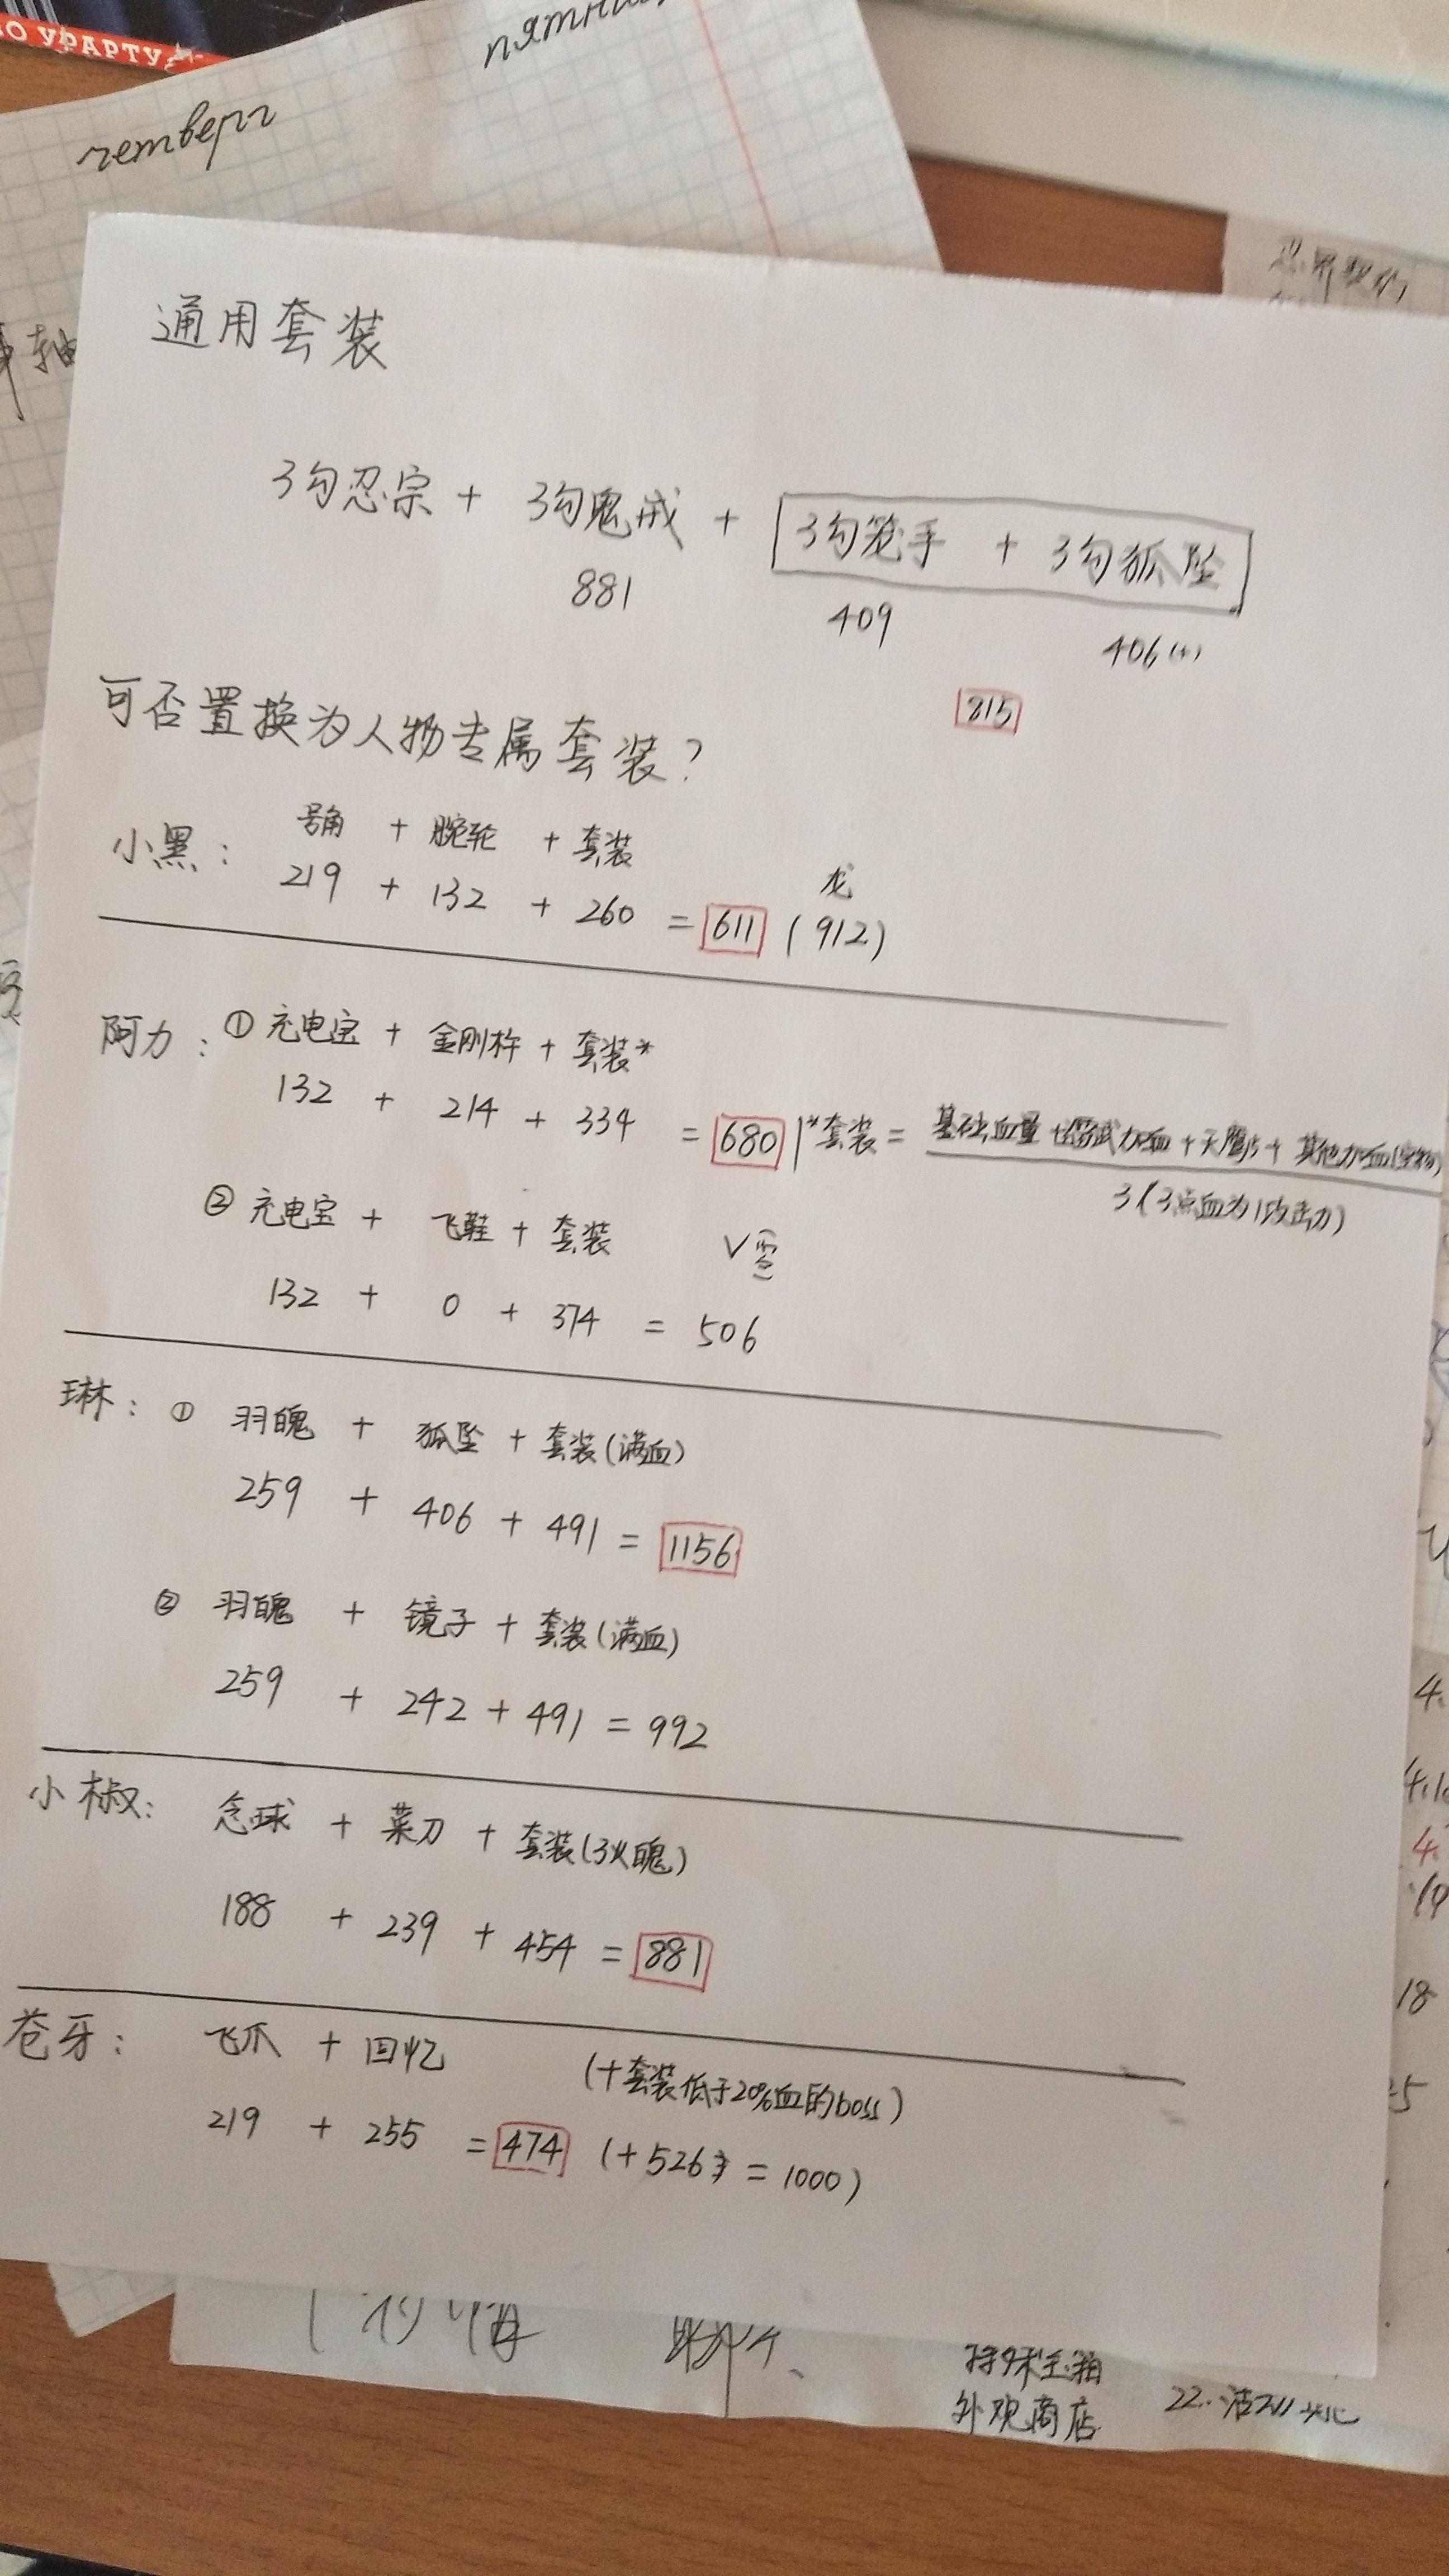 О УРАРТУ
четверг
通用套装
3勾忍宗 + 3勾鬼戒 + 3勾笼手 + 3勾狐坠
881 409 406(+)
815
可否置换为人物专属套装?
号角 + 腕轮 + 套装
小黑: 219 + 132 + 260 = 611 (912)
龙
阿力: ① 充电宝 + 金刚杵 + 套装*
132 + 214 + 334 = 680 | *套装 = 基础血量 + 加血 + 天鹰 + 其他加血
3 (3点血为1攻击力)
② 充电宝 + 飞鞋 + 套装
132 + 0 + 374 = 506
琳: ① 羽魄 + 狐坠 + 套装(满血)
259 + 406 + 491 = 1156
② 羽魄 + 镜子 + 套装(满血)
259 + 242 + 491 = 992
小椒: 念球 + 菜刀 + 套装(3火魄)
188 + 239 + 454 = 881
苍牙: 飞爪 + 回忆 (+套装低于20%血的boss)
219 + 255 = 474 (+526 = 1000)
外观商店
22.
18